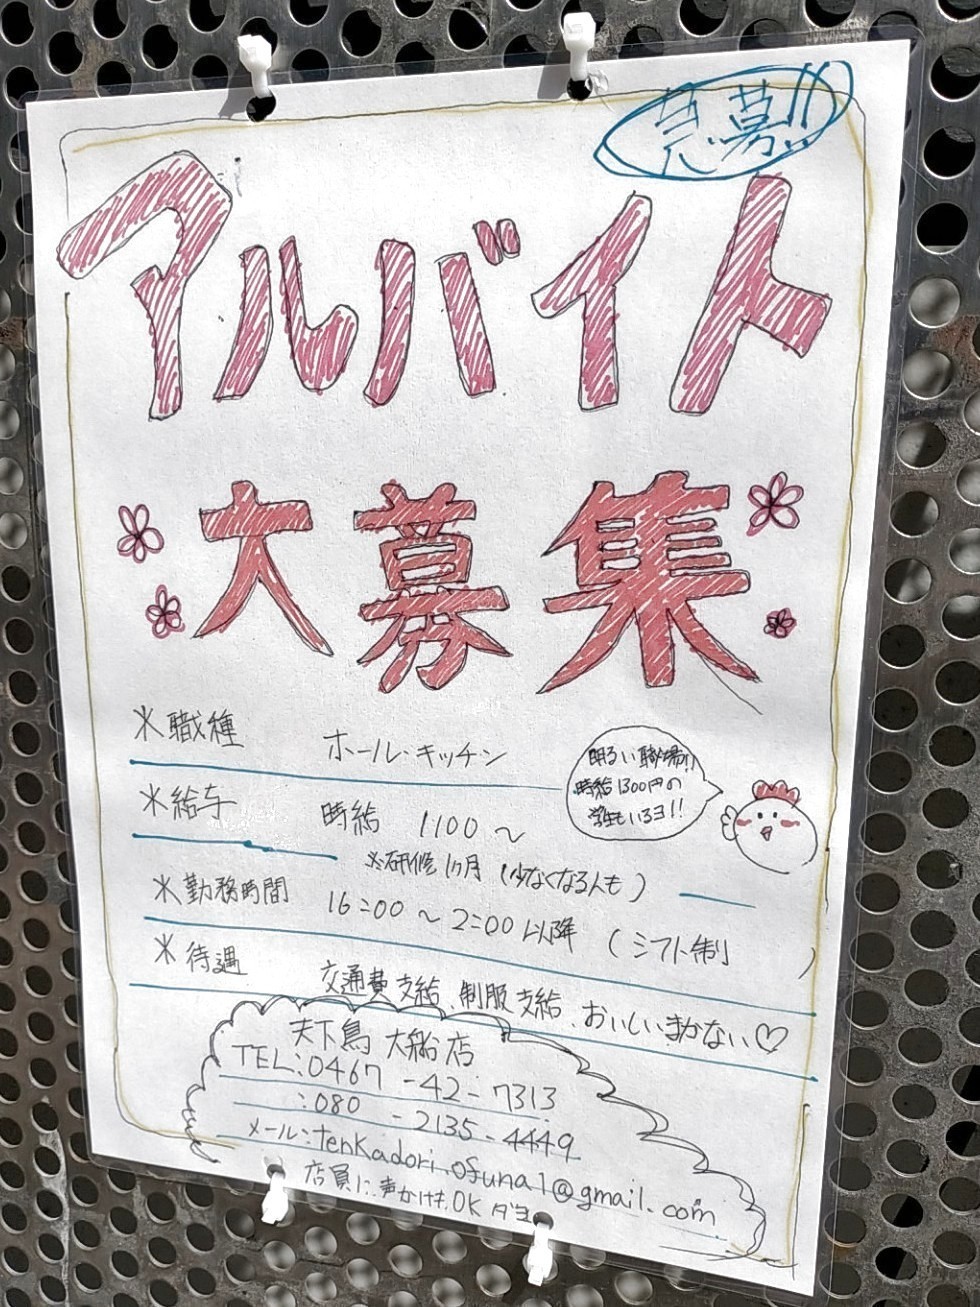 急募!!
アルバイト
大募集
＊職種 ホール・キッチン
明るい職場!!
時給1300円の
学生もいるヨ!!
＊給与 時給 1100 〜
※研修1ヶ月 (少なくなる人も)
＊勤務時間 16:00 〜 2:00 以降 (シフト制 )
＊待遇 交通費支給、制服支給、おいしいまかない♡
天下鳥 大船店
TEL:0467-42-7313
:080-2135-4449
メール:tenkadori.ofuna1@gmail.com
店員に声かけもOK